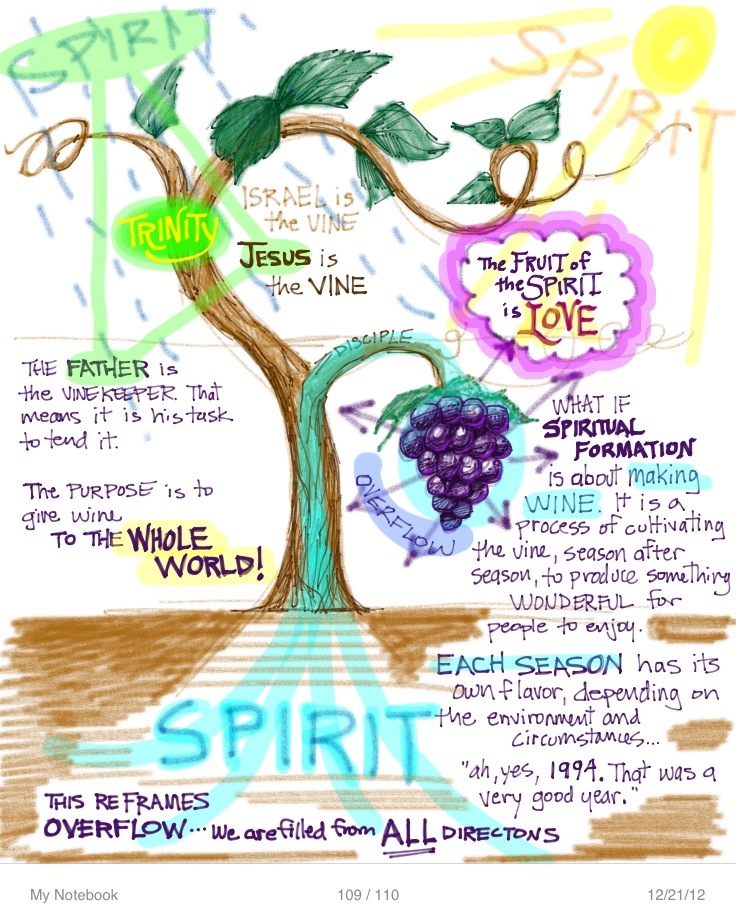 SPIRIT
SPIRIT
TRINITY
ISRAEL is
the VINE
JESUS is
the VINE
The FRUIT of
the SPIRIT
is LOVE
DISCIPLE
THE FATHER is
the VINEKEEPER. That
means it is his task
to tend it.
The PURPOSE is to
give wine
TO THE WHOLE
WORLD!
OVERFLOW
WHAT IF
SPIRITUAL
FORMATION
is about making
WINE. It is a
process of cultivating
the vine, season after
season, to produce something
WONDERFUL for
people to enjoy.
EACH SEASON has its
own flavor, depending on
the environment and
circumstances...
"ah, yes, 1994. That was a
very good year."
SPIRIT
THIS REFRAMES
OVERFLOW... we are filled from ALL DIRECTONS
My Notebook
109 / 110
12/21/12